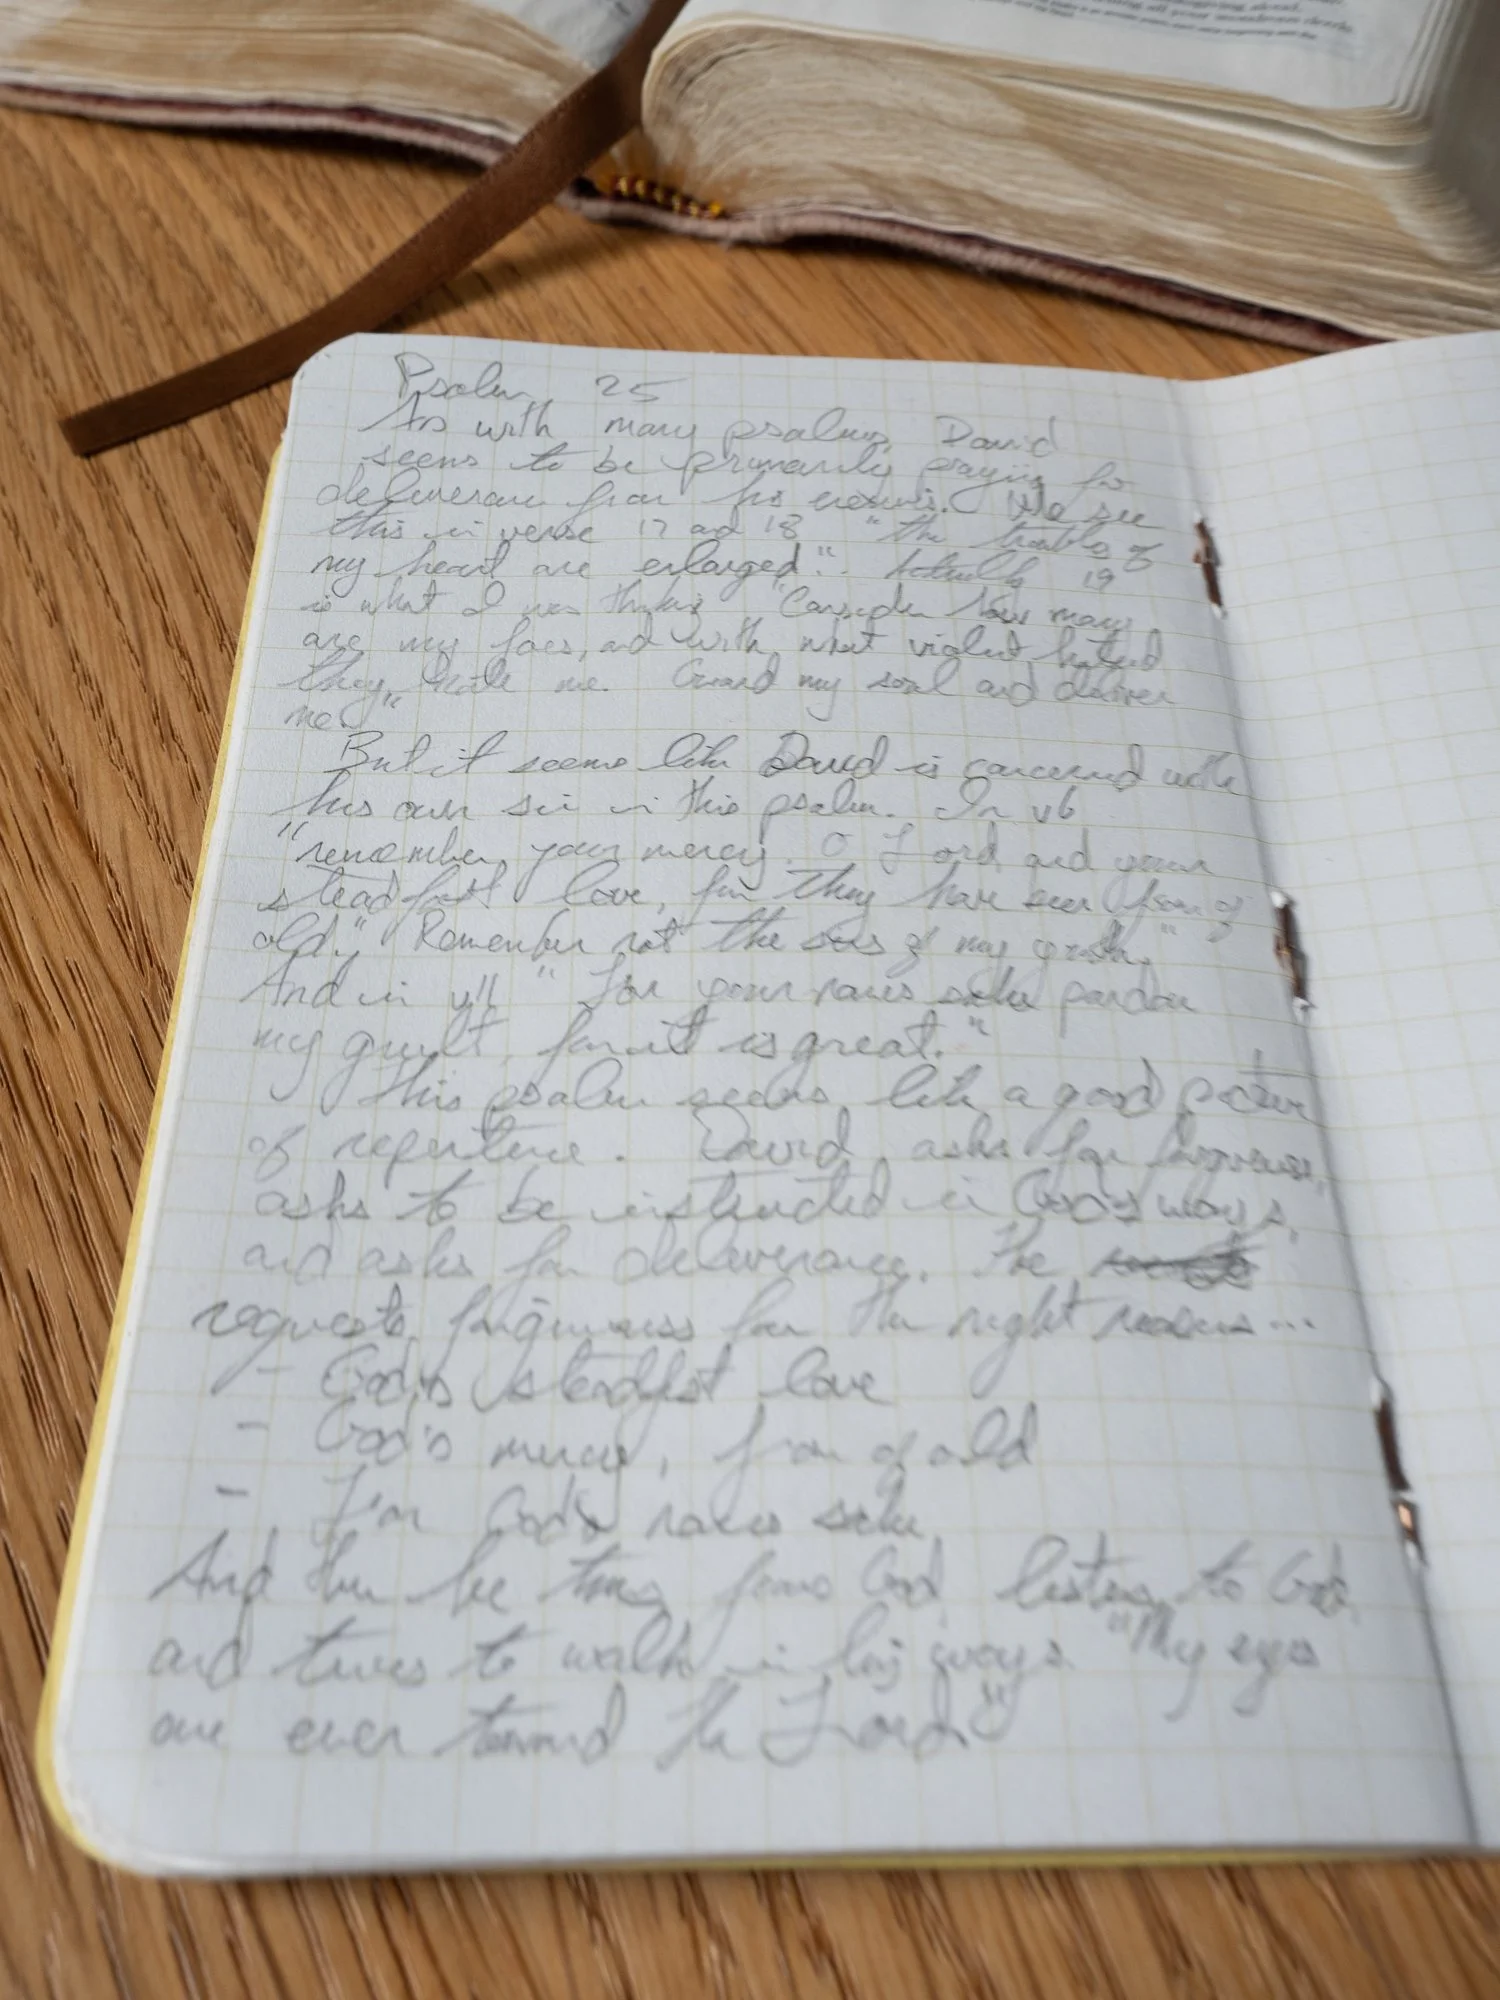 Psalm 25
As with many psalms, David
seems to be primarily praying for
deliverance from his enemies. We see
this in verse 17 and 18 "the troubles of
my heart are enlarged". Actually 19
is what I was thinking "Consider how many
are my foes, and with what violent hatred
they hate me. Guard my soul and deliver
me"
But it seems like David is concerned with
his own sin in this psalm. In v6
"remember your mercy. O Lord and your
steadfast love, for they have been from of
old," Remember not the sins of my youth,"
And in v11 "For your names sake pardon
my guilt, for it is great."
This psalm seems like a good picture
of repentence. David asks for forgiveness,
asks to be instructed in God's ways,
and asks for deliverance. He
requests forgiveness for the right reasons...
- God's steadfast love
- God's mercy, from of old
- For God's names sake
And then he God, listens to God,
and tries to walk in his ways. "My eyes
are ever toward the Lord"